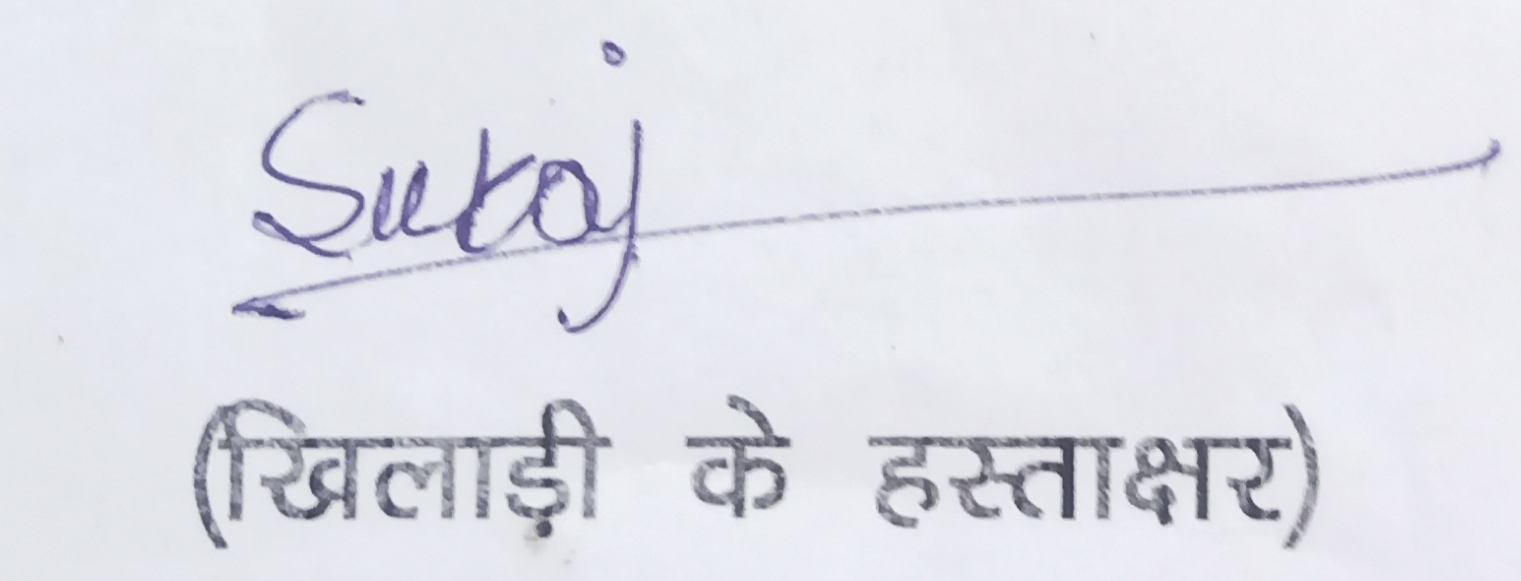 Suraj
(खिलाड़ी के हस्ताक्षर)